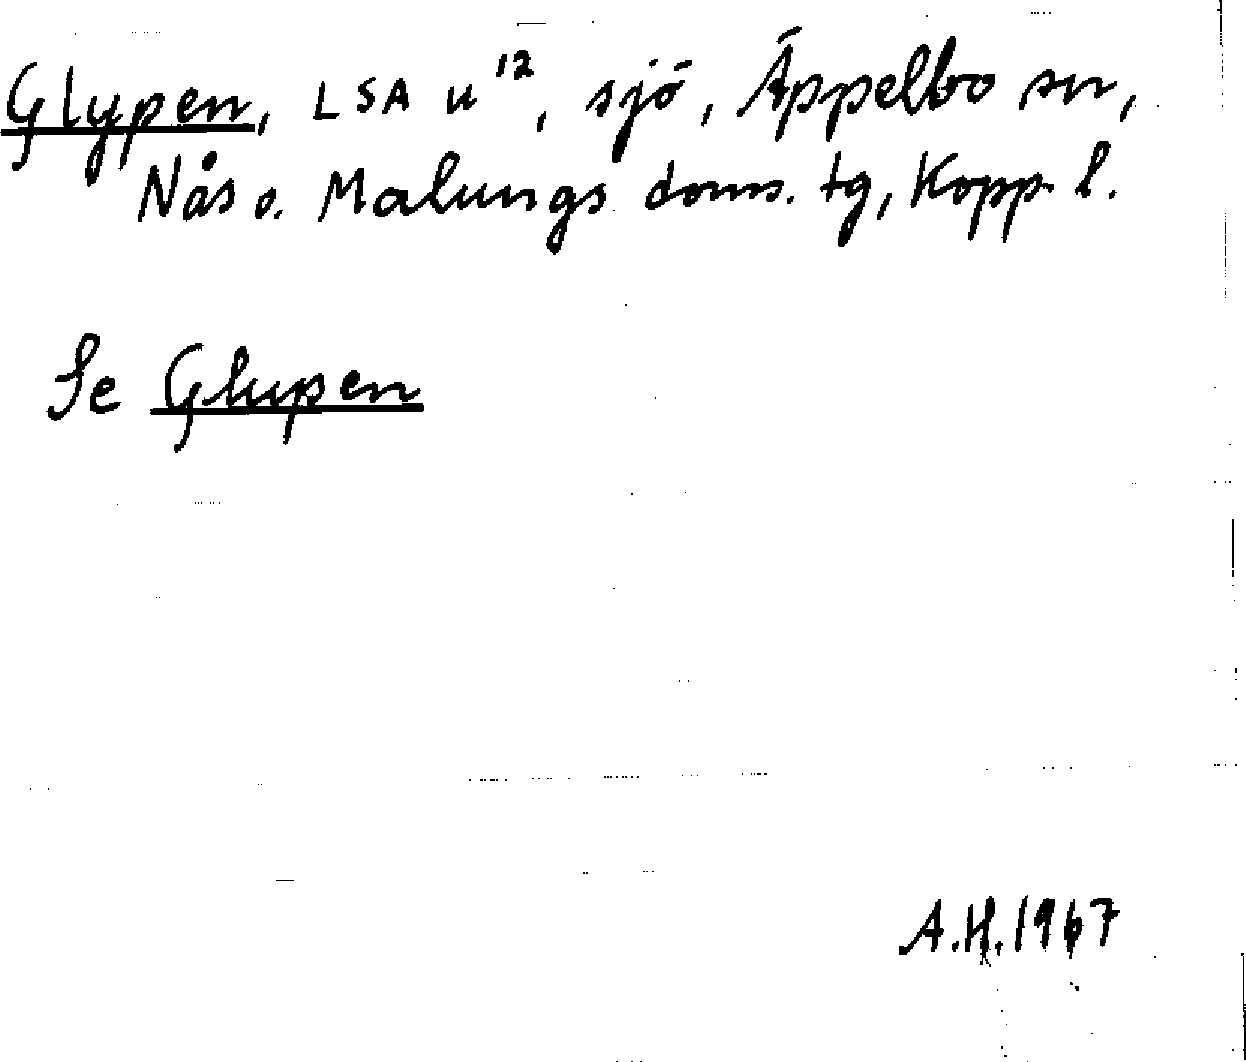 Glypen, LSA u¹², sjö, Äppelbo sn,
Nås o. Malungs doms. tg, Kopp. l.
Se Glupen
A.H. 1967